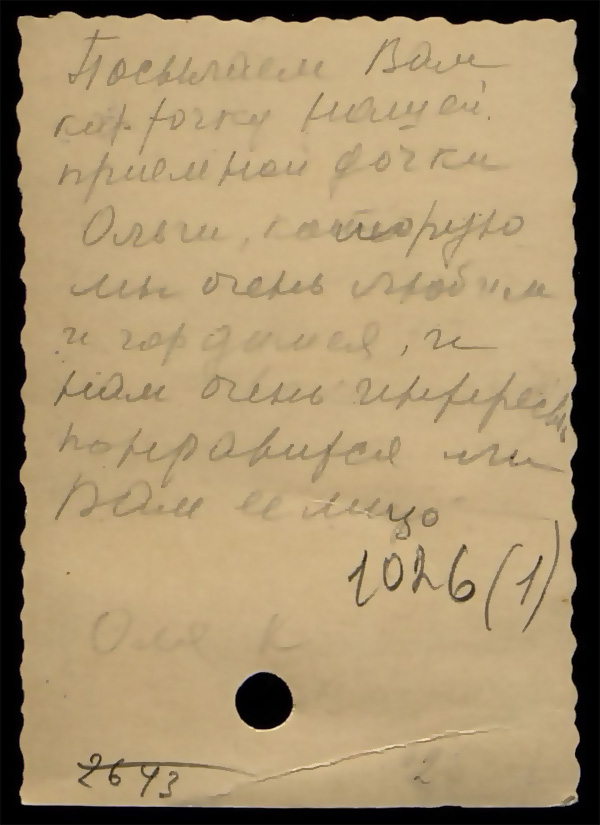 Посылаем Вам
карточку нашей
приемной дочки
Ольги, которую
мы очень любим
и гордимся, и
нам очень интересно
понравится ли
Вам ее лицо
1026 (1)
Оля К
2643
2